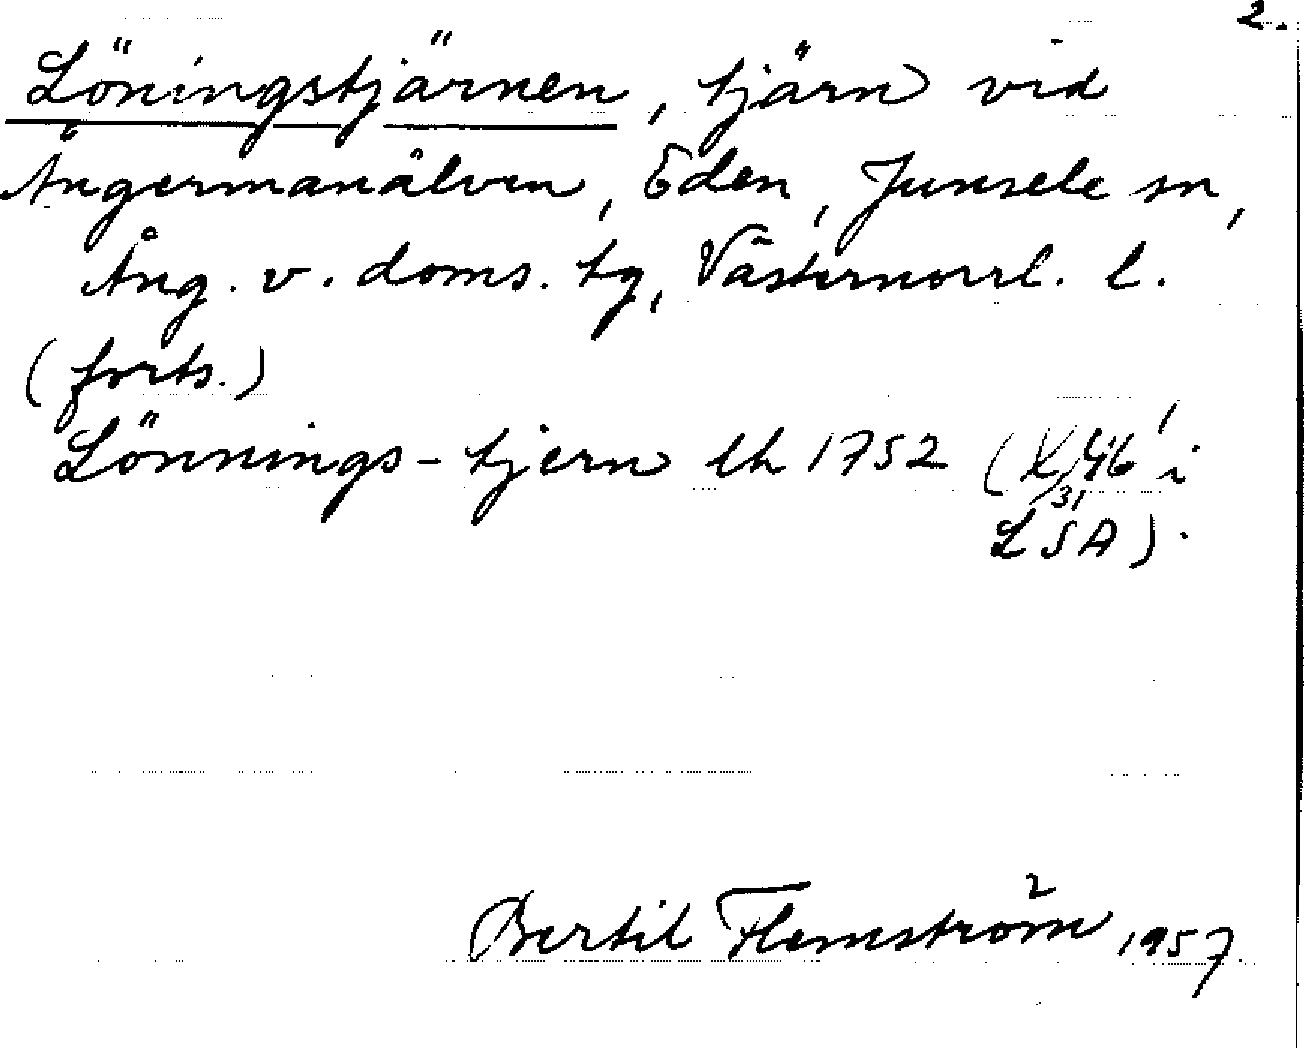 2.
Löningstjärnen, tjärn vid
Ångermanälven, Eden, Junsele sn,
Ång. v. doms. tg, Västernorrl. l.
(forts.)
Lönnings-tjern lh 1752 (X46 1/31 i
LSA).
Bertil Flemström 1957